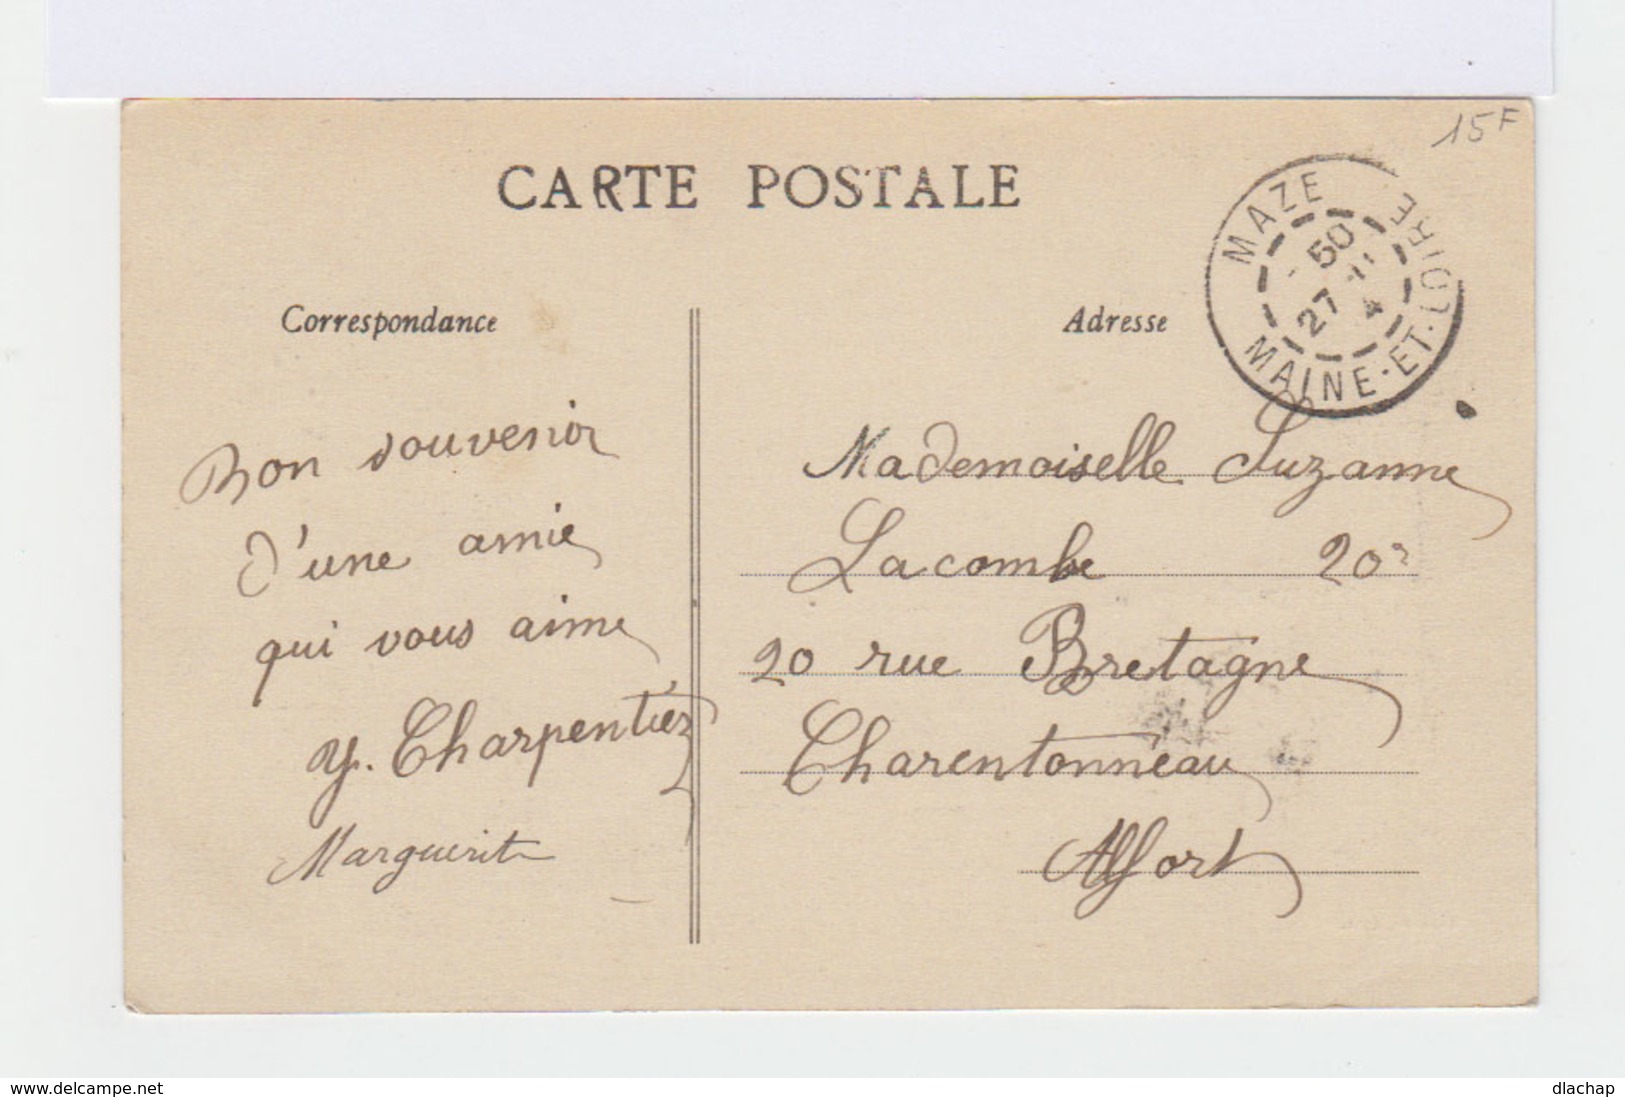 15F
CARTE POSTALE
MAZE
50
27 11
4
MAINE-ET-LOIRE
Correspondance
Adresse
Bon souvenir
d'une amie
qui vous aime
y. Charpentier
Marguerite
Mademoiselle Suzanne
Lacombe 20
20 rue Bretagne
Charentonneau
Alfort
www.delcampe.net
dlachap